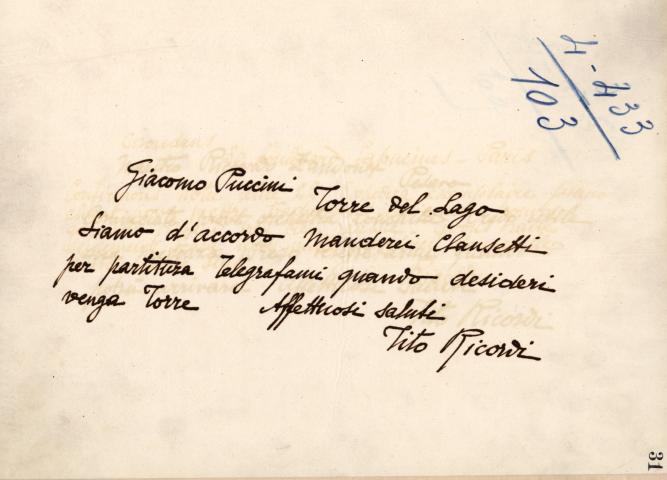 4-433
103
Giacomo Puccini
Torre del Lago
Siamo d'accordo manderei Clausetti
per partitura Telegrafami quando desideri
venga Torre Affettuosi saluti
Tito Ricordi
31